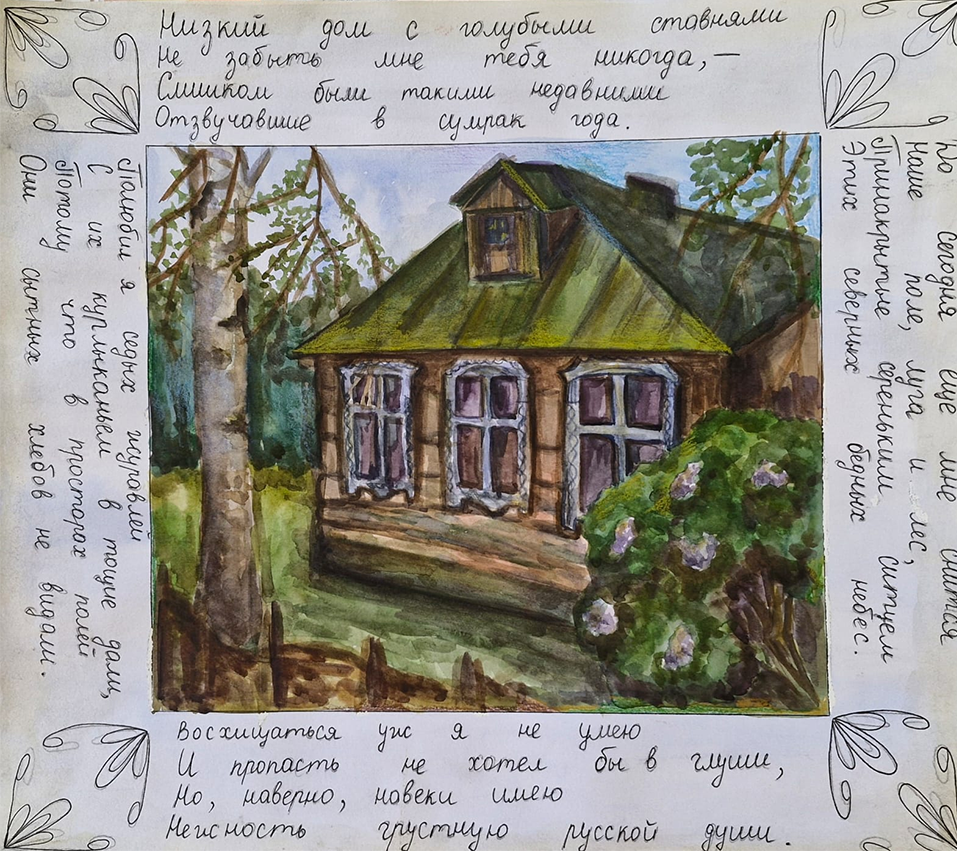 Низкий дом с голубыми ставнями
Не забыть мне тебя никогда,—
Слишком были такими недавними
Отзвучавшие в сумрак года.
До сегодня еще мне снится
Наше поле, луга и лес,
Принакрытые сереньким ситцем
Этих северных бедных небес.
Восхищаться уж я не умею
И пропасть не хотел бы в глуши,
Но, наверно, навеки имею
Нежность грустную русской души.
Полюбил я седых журавлей
С их курлыканьем в тощие дали,
Потому что в просторах полей
Они сытных хлебов не видали.